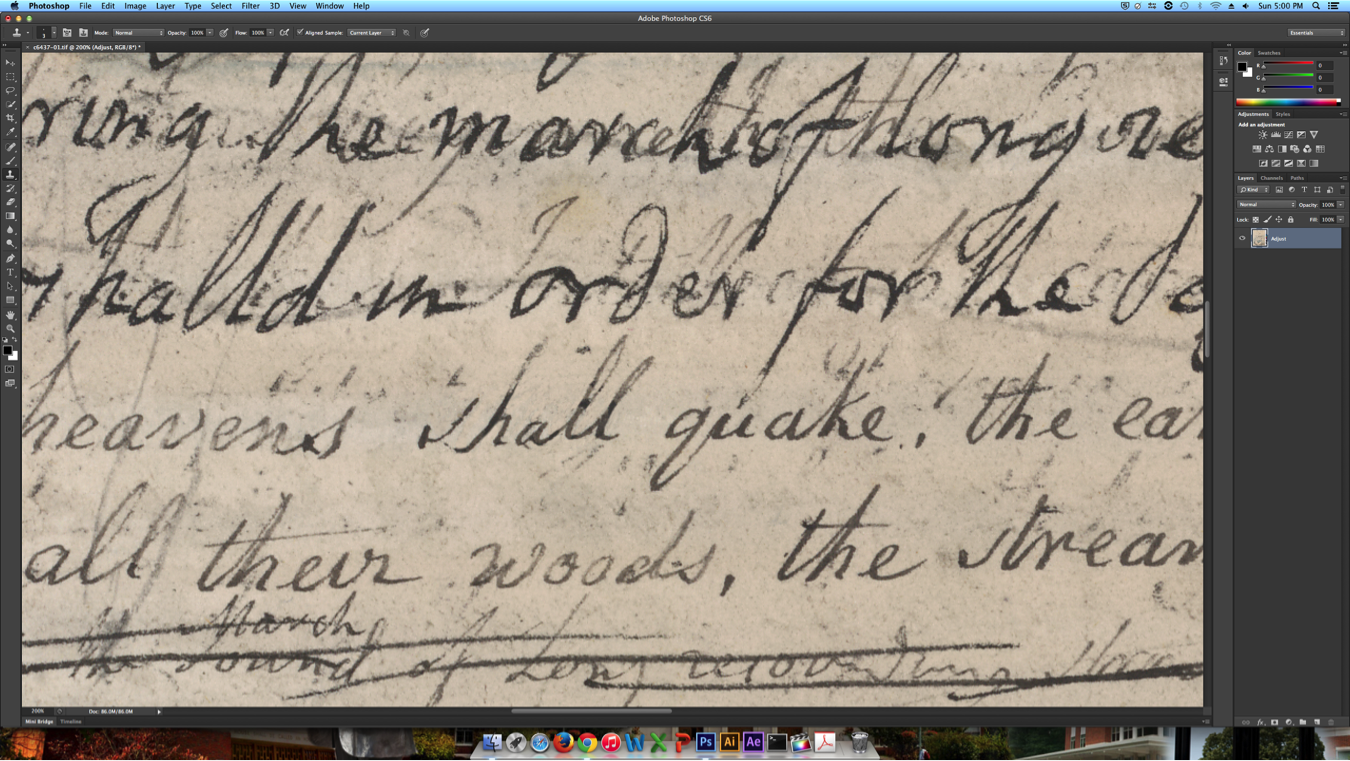 Photoshop File Edit Image Layer Type Select Filter 3D View Window Help Sun 5:00 PM
Adobe Photoshop CS6
Mode: Normal Opacity: 100% Flow: 100% Aligned Sample: Current Layer Essentials
c6437-01.tif @ 200% (Adjust, RGB/8*) *
ring the march of thong re
shalld in order for the de
heavens shall quake, the ear
all their woods, the stream
March
the sound of Long resounding
Color Swatches
R 0
G 0
B 0
Adjustments Styles
Add an adjustment
Layers Channels Paths
Kind
Normal Opacity: 100%
Lock: Fill: 100%
Adjust
200% Doc: 86.0M/86.0M
Mini Bridge Timeline
Ps Ai Ae